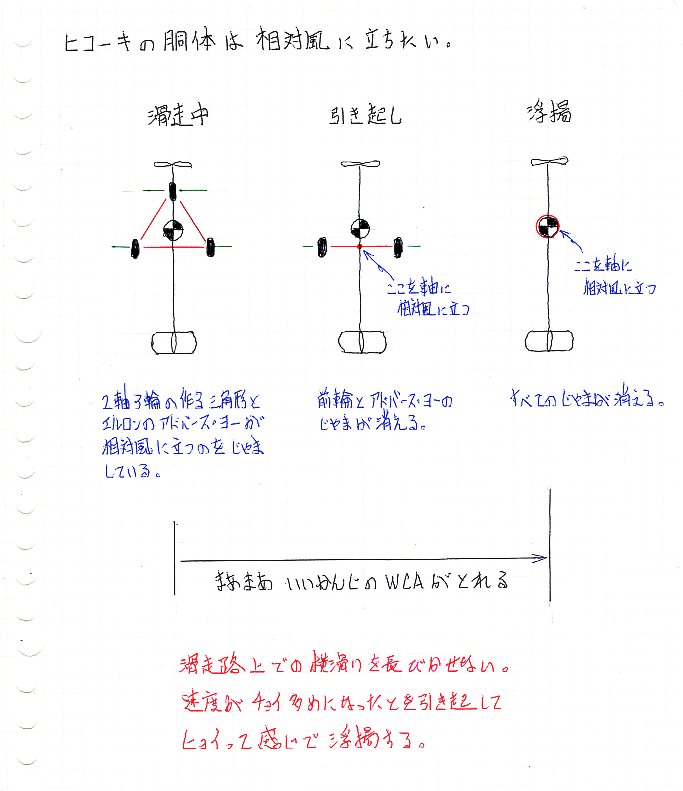 ヒコーキの胴体は相対風に立ちたい。
滑走中
引き起し
浮揚
ここを軸に
相対風に立つ
ここを軸に
相対風に立つ
2軸3輪の作る三角形と
エルロンのアドバース・ヨーが
相対風に立つのをじゃま
している。
前輪とアドバース・ヨーの
じゃまが消える。
すべてのじゃまが消える。
まあまあいいかんじのWCAがとれる
滑走路上での横滑りを長びかせない。
速度がチョイ多めになったとき引き起して
ヒョイって感じで浮揚する。